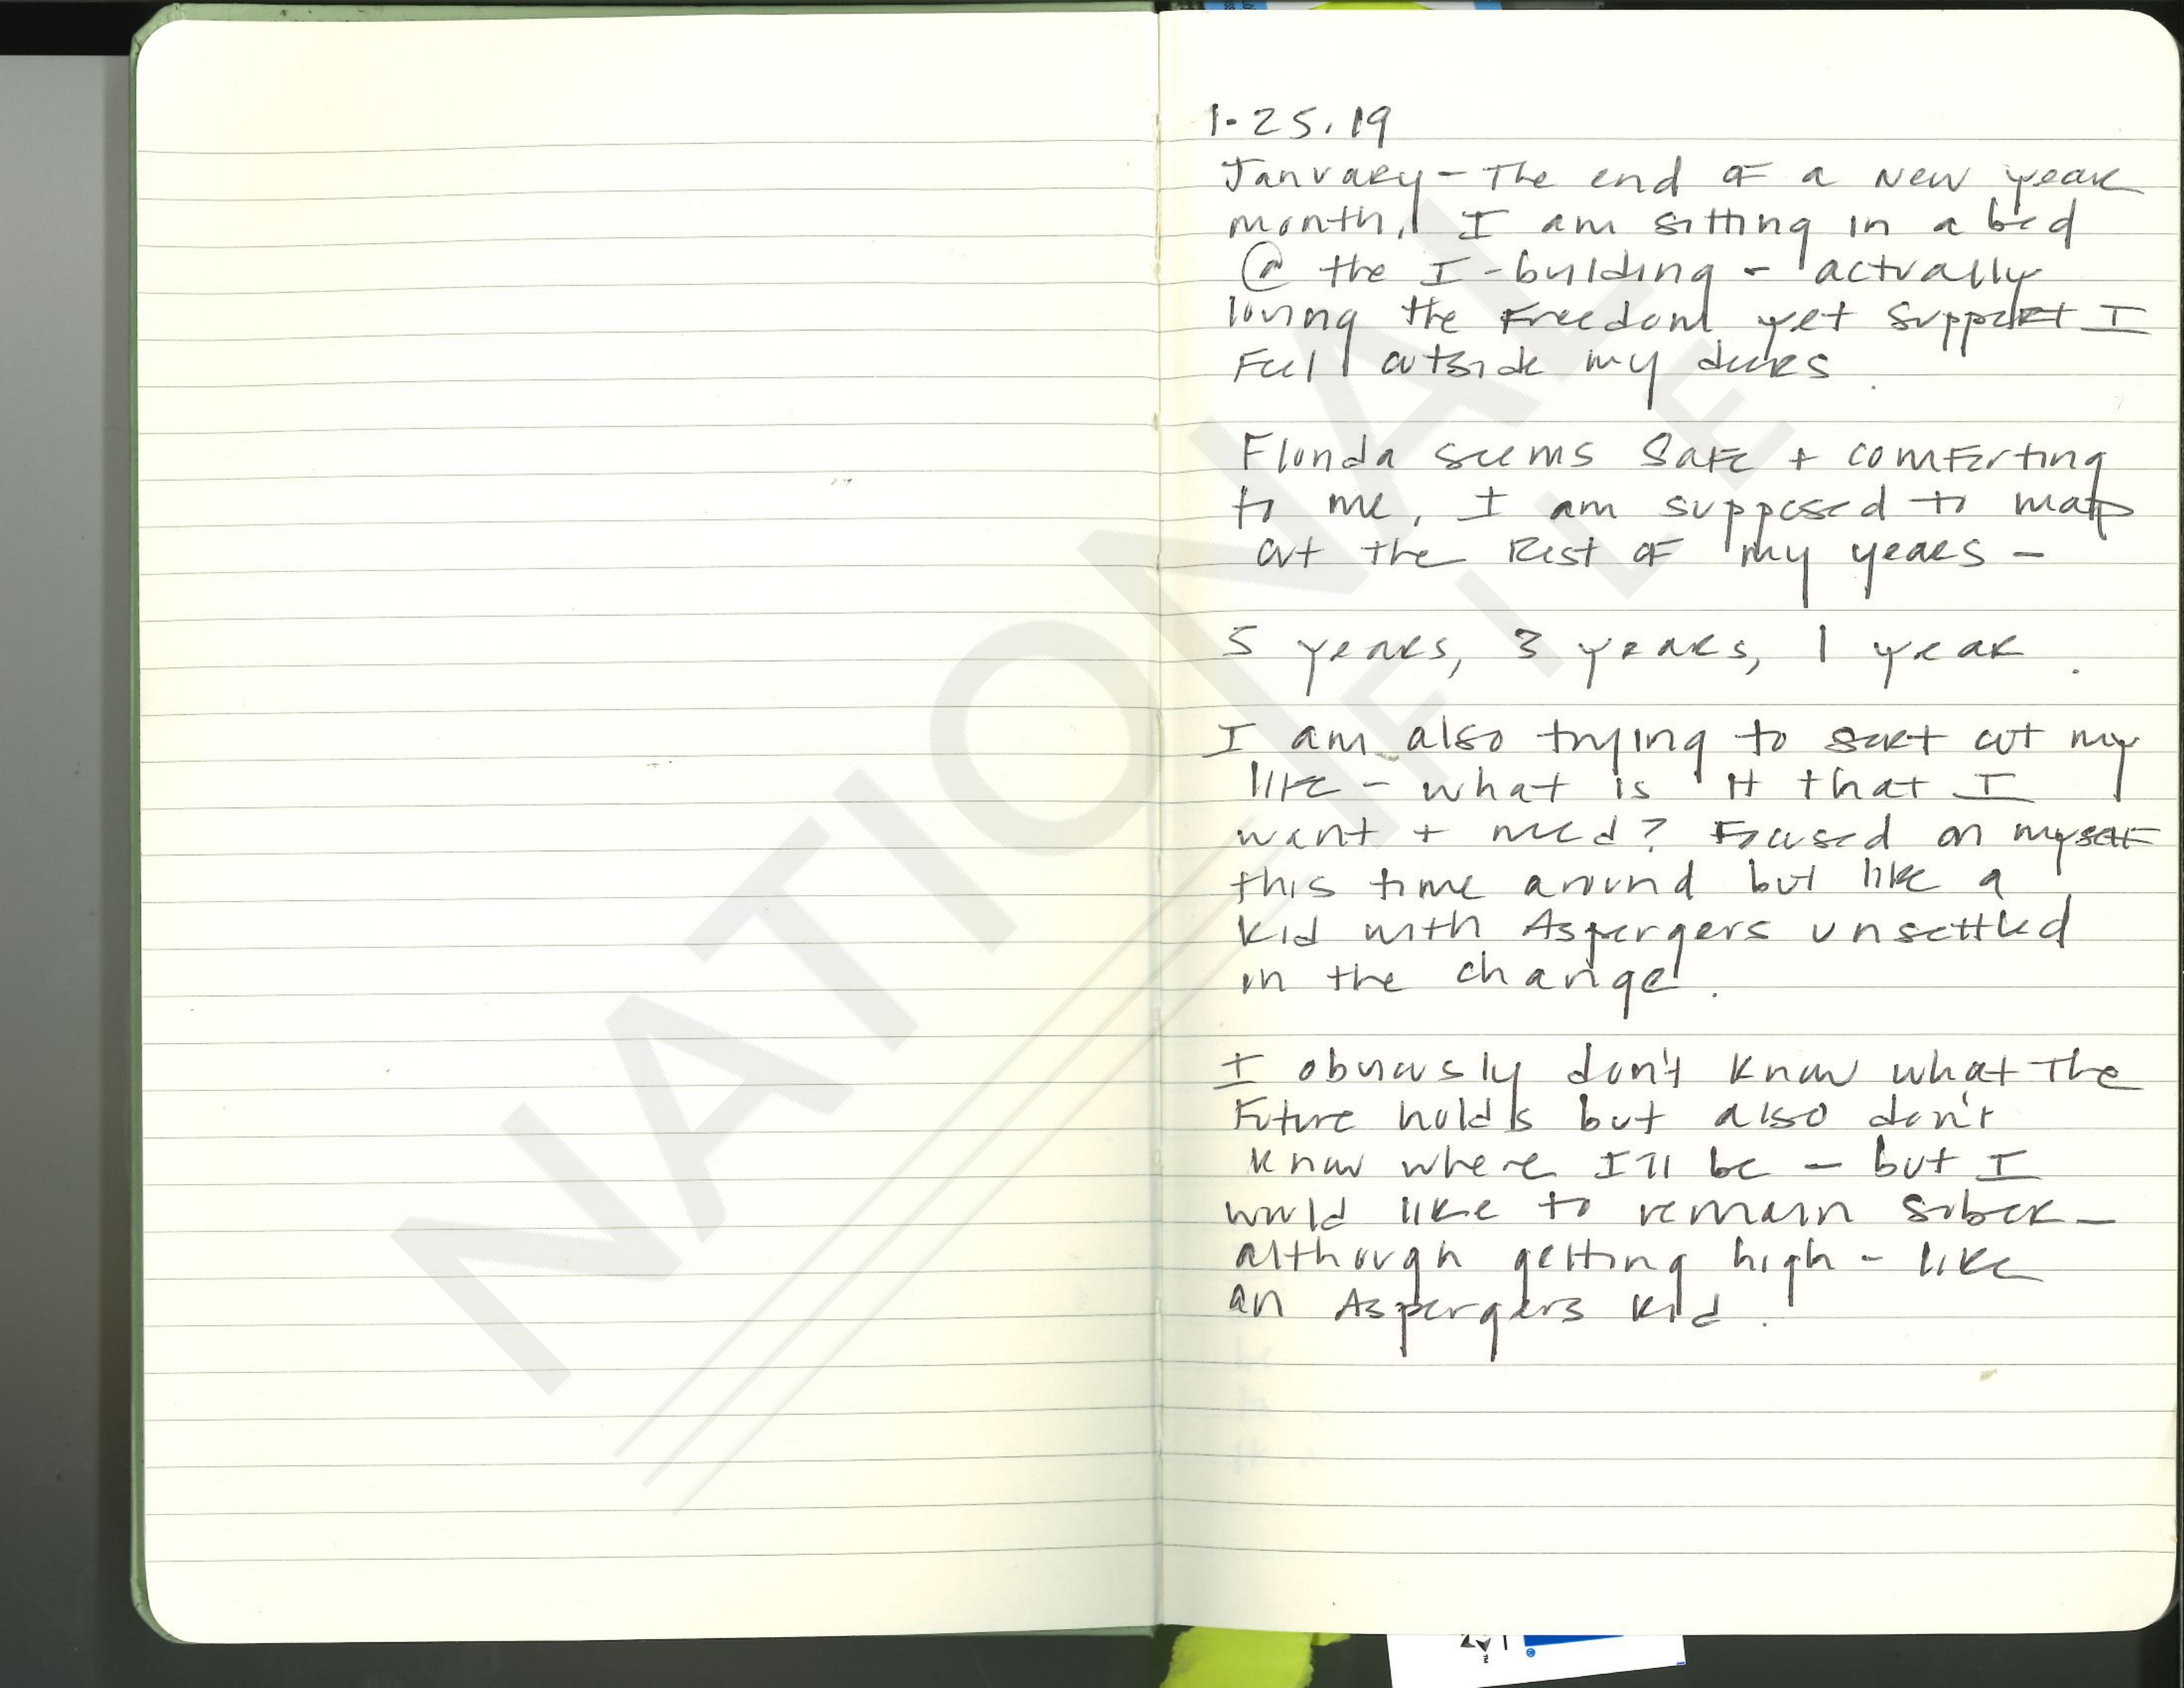 1.25.19
January - The end of a New year
month, I am sitting in a bed
@ the I-building - actually
loving the Freedom yet support I
Feel outside my doors
Florida seems Safe + comforting
to me, I am supposed to map
out the Rest of my years -
5 years, 3 years, 1 year.
I am also trying to sort out my
life - what is it that I
want + need? Focused on myself
this time around but like a
kid with Aspergers unsettled
in the change.
I obviously don't know what The
Future holds but also don't
know where I'll be - but I
would like to remain sober -
although getting high - like
an Aspergers kid.
NATIONAL
FILE